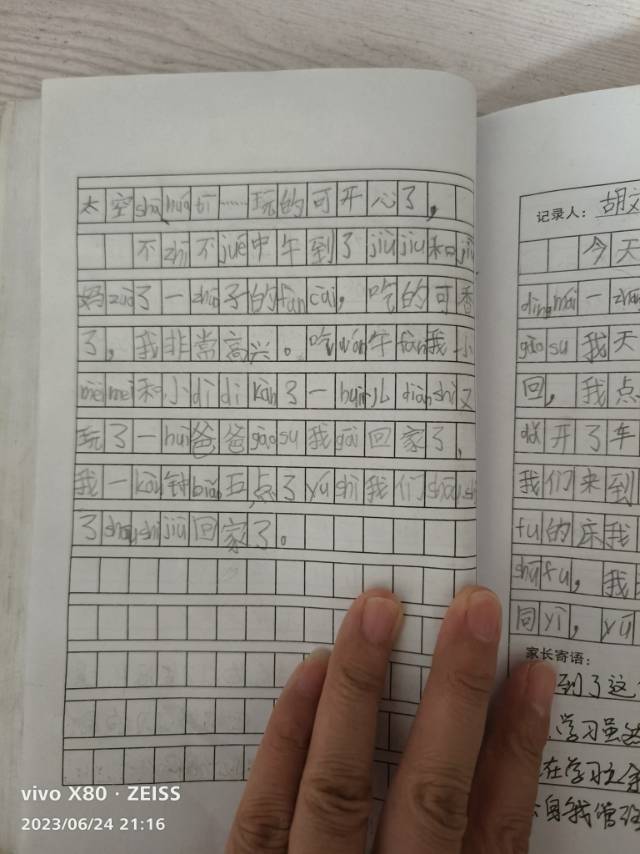 太空shā huá tī……玩的可开心了，
不zhī不jué中午到了jiù jiu和jiù
妈zuò了一zhuō子的fàn cài，吃的可香
了，我非常高兴。吃wán午fàn我小
mèi mei和小dì di kàn了一huìr儿diàn shì又
玩了一huì爸爸gào su我gāi回家了，
我一kàn钟biǎo五点了yú shì我们shōu shi
了shōu shi jiù回家了。
记录人：胡文
今天
dìng mái一
gào su我天
回，我点
开了车
我们来到
fu的床我
shū fu，我
同yì，yú
家长寄语：
到了这个
学习虽
在学习之余
自我
vivo X80 · ZEISS
2023/06/24 21:16